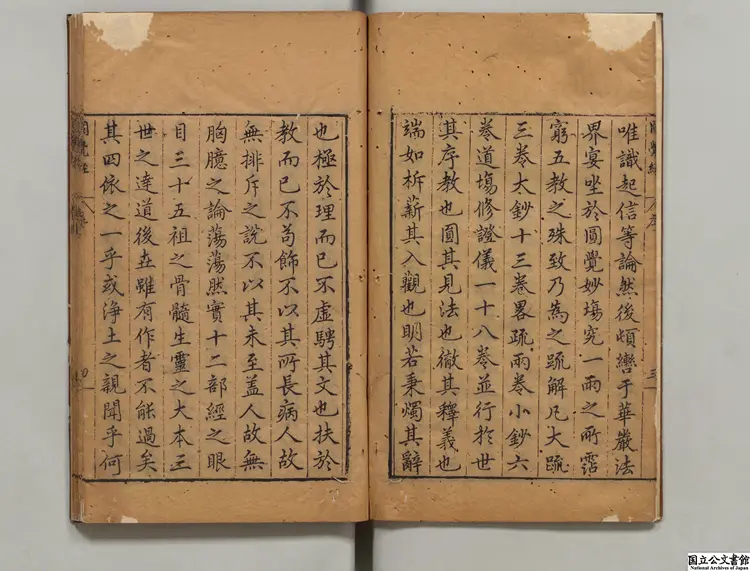 唯識起信等論然後頓轡于華嚴法
界宴坐於圓覺妙塲究一雨之所霑
窮五教之殊致乃為之䟽解凡大䟽
三卷大鈔十三卷畧䟽兩卷小鈔六
卷道塲修證儀一十八卷並行於世
其序教也圓其見法也徹其釋義也
端如析薪其入觀也明若秉燭其辭
也極於理而已不虛騁其文也扶於
教而已不苟飾不以其所長病人故
無排斥之說不以其未至盖人故無
胸臆之論蕩蕩然實十二部經之眼
目三十五祖之骨髓生靈之大本三
世之達道後世雖有作者不能過矣
其四依之一乎或淨土之親聞乎何
國立公文書館
National Archives of Japan